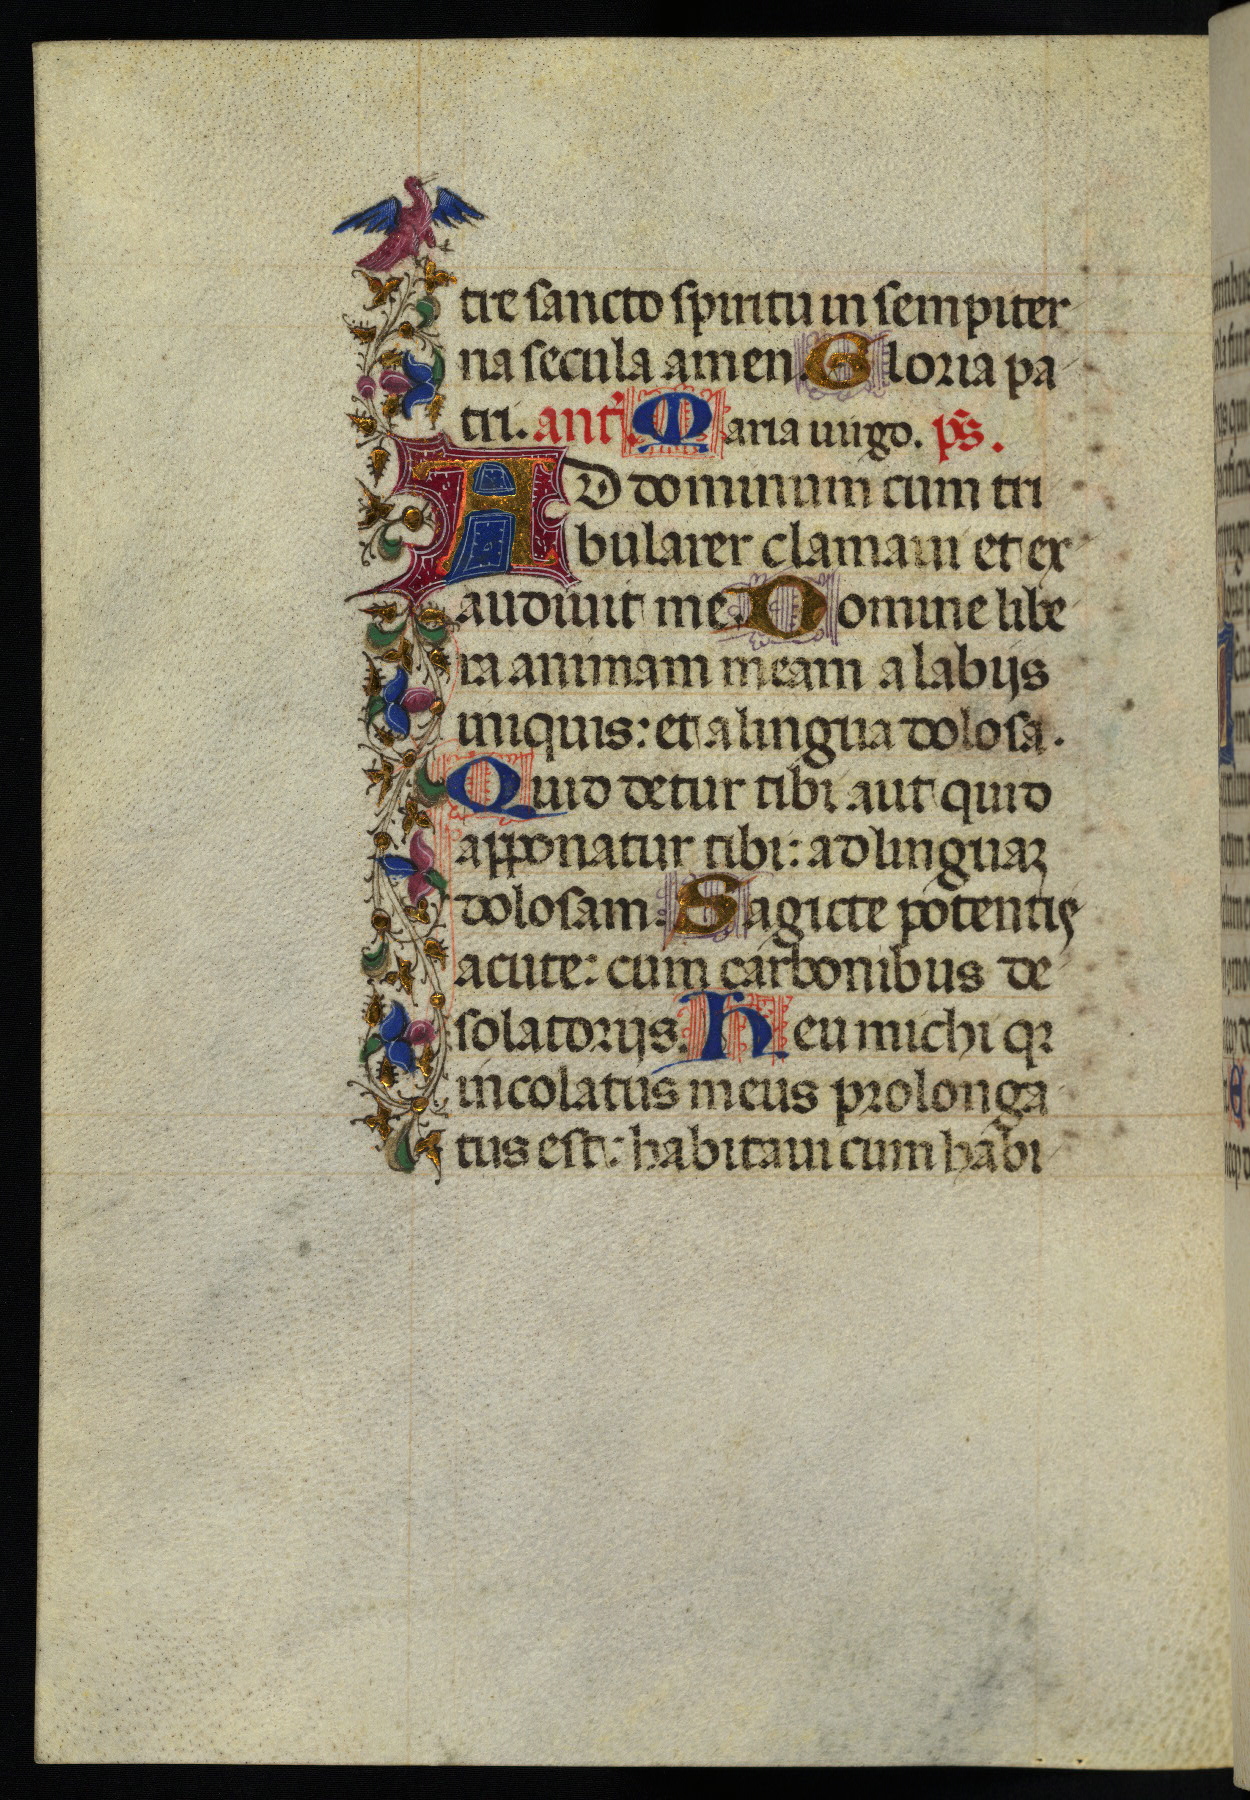 tre sancto spiritu in sempiter
na secula amen. Gloria pa
tri. ant͛. Maria uirgo. ps̄.
AD dominum cum tri
bularer clamaui et ex
audiuit me. Domine libe
ra animam meam a labijs
iniquis: et a lingua dolosa.
Quid detur tibi aut quid
apponatur tibi: ad linguaꝫ
dolosam. Sagicte potentis
acute: cum carbonibus de
solatorijs. Heu michi qꝛ
incolatus meus prolonga
tus est: habitaui cum habi